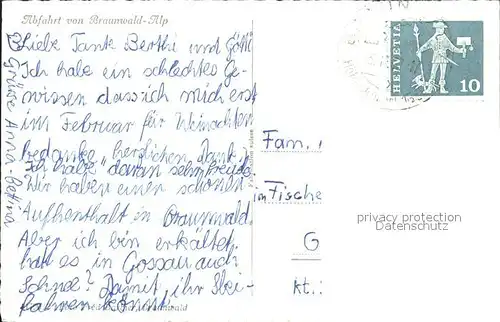 Abfahrt von Braunwald-Alp
Liebe Tante Berthi und Götti
Ich habe ein schlechtes Ge-
wissen dass ich mich erst
im Februar für Weinachten
bedanke, herzlichen Dank.
Ich habe daran sehr freude.
Wir haben einen schönen
Aufhenthalt in Braunwald.
Aber ich bin erkältet.
hat es in Gossau auch
Schnee? Damit ihr Ski-
fahren könnt.
Grüsse Anna-Bettina
HELVETIA
10
Fam.
im Fische
G
kt.:
privacy protection
Datenschutz